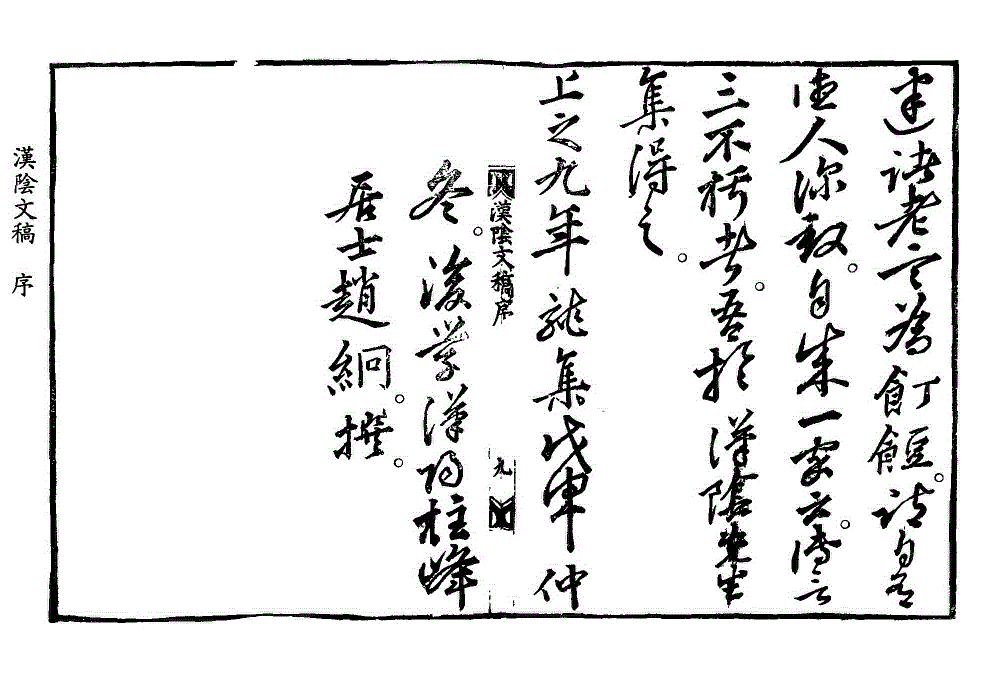 諸老為飣餖。詩自有
德人深致。自成一家云。傳言
三不朽者。吾於 漢陰先生
集得之。
上之九年龍集戊申仲
漢陰文稿序 九
冬。後學漢陽柱峰
居士趙絅。撰。
漢陰文稿 序